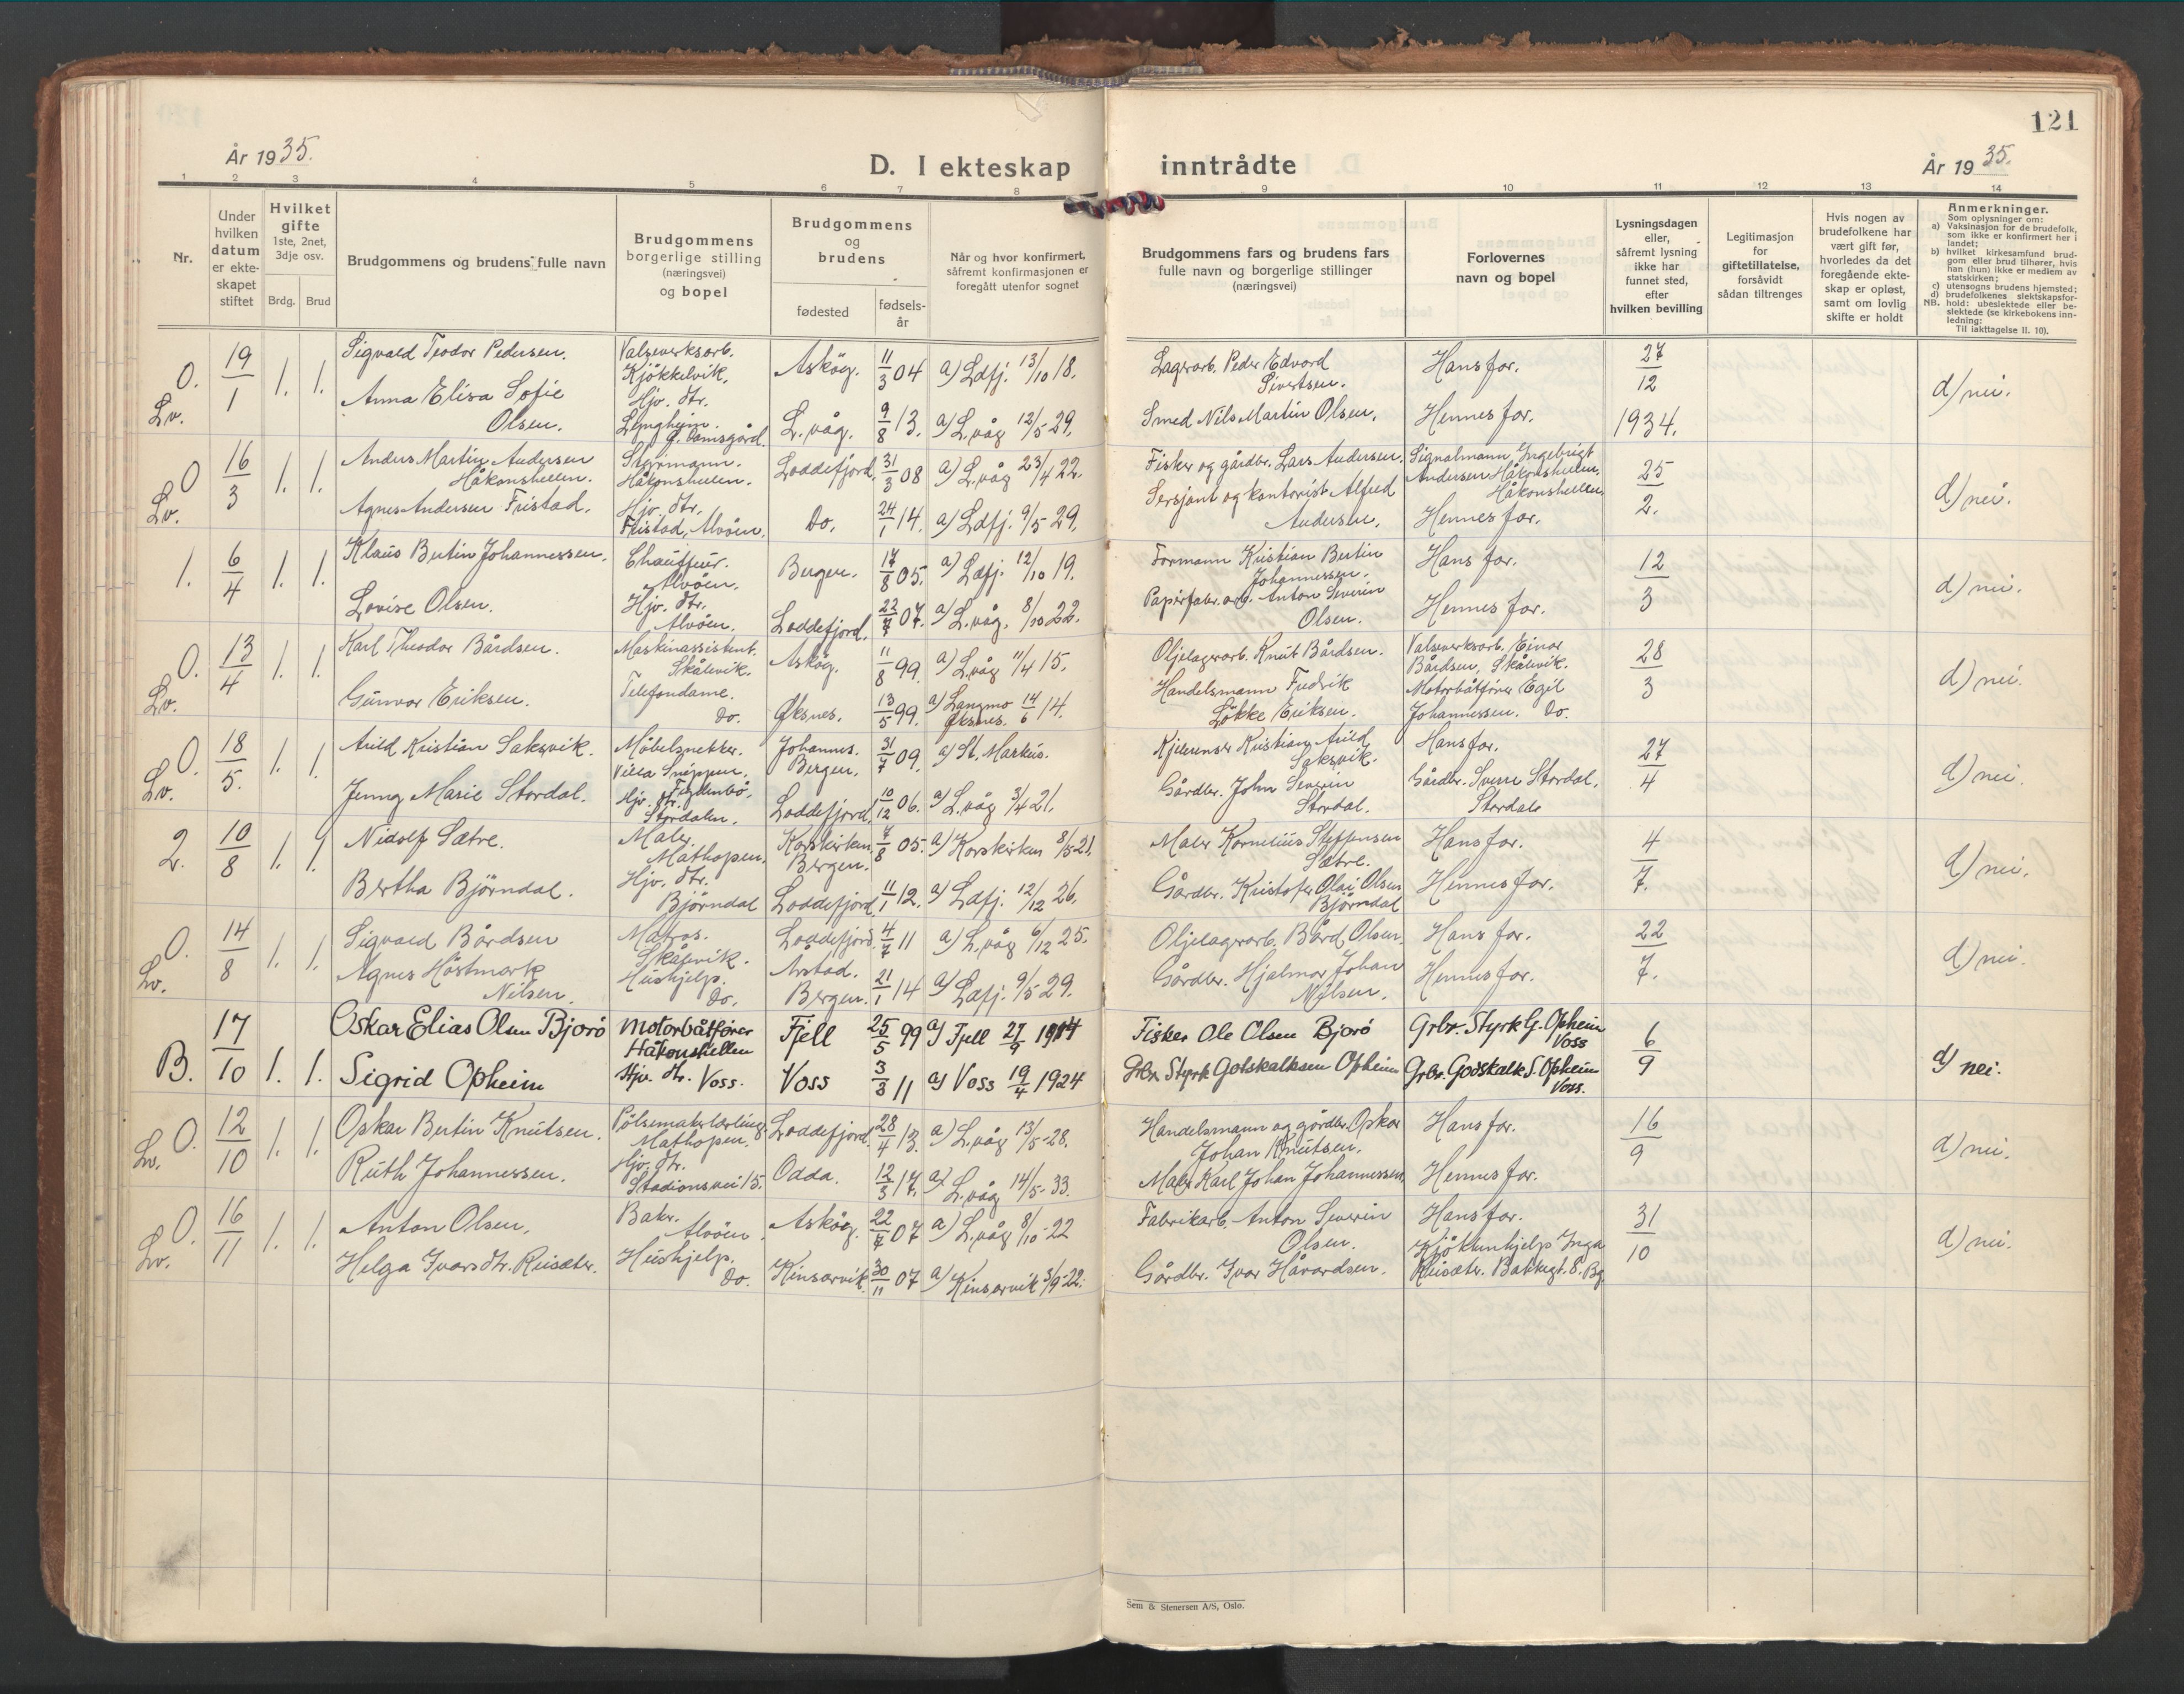 121
År 1935.
D. I ekteskap inntrådte
År 1935.
1 2 3 4 5 6 7 8 9 10 11 12 13 14
Nr.
Under hvilken datum er ekteskapet stiftet
Hvilket gifte 1ste, 2net, 3dje osv.
Brdg. Brud
Brudgommens og brudens fulle navn
Brudgommens borgerlige stilling (næringsvei) og bopel
Brudgommens og brudens
fødested
fødselsår
Når og hvor konfirmert, såfremt konfirmasjonen er foregått utenfor sognet
Brudgommens fars og brudens fars fulle navn og borgerlige stillinger (næringsvei)
Forlovernes navn og bopel
Lysningsdagen eller, såfremt lysning ikke har funnet sted, efter hvilken bevilling
Legitimasjon for giftetillatelse, forsåvidt sådan tiltrenges
Hvis nogen av brudefolkene har vært gift før, hvorledes da det foregående ekteskap er opløst, samt om lovlig skifte er holdt
Anmerkninger.
Som oplysninger om:
a) Vaksinasjon for de brudefolk, som ikke er konfirmert her i landet;
b) hvilket kirkesamfund brudgom eller brud tilhører, hvis han (hun) ikke er medlem av statskirken;
c) utensogns brudens hjemsted;
d) brudefolkenes slektskapsforhold: ubeslektede eller beslektede (se kirkebokens innledning:
NB.
Til iakttagelse II. 10).
0. Lv. 19/1 1. 1. Sigvald Teodor Pedersen. Valseverksarb. Kjökkelvik. Asköy. 11/3 04 a) Ldfj. 13/10 18. Lagerarb. Peder Edvard Sivertsen. Hans far. 27/12 1934. d) nei.
Anna Elisa Sofie Olsen. Hjv. dtr. Lyngheim. G. Damsgård. L.våg. 9/8 13. a) L.våg 12/5 29. Smed Nils Martin Olsen. Hennes far.
0 Lv. 16/3 1. 1. Anders Martin Andersen Håkonshellen. Styrmann. Håkonshellen. Loddefjord. 31/3 08 a) L.våg 23/4 22. Fisker og gårdbr. Lars Andersen. Signalmann Ingebrigt Andersen Håkonshellen, Håkonshellen. 25/2. d) nei.
Agnes Andersen Fristad. Hjv. dtr. Fristad, Alvöen. Do. 24/1 14. a) Ldfj. 9/5 29. Sersjant og kontorist Alfred Andersen. Hennes far.
1. 6/4 1. 1. Klaus Bertin Johannessen. Chauffeur. Alvöen. Bergen. 17/8 05. a) Ldfj. 12/10 19. Formann Kristian Bertin Johannessen. Hans far. 12/3 d) nei.
Lovise Olsen. Hjv. dtr. Alvöen. Loddefjord. 22/7 07. a) L.våg. 8/10 22. Papirfabr. arb. Anton Severin Olsen. Hennes far.
0. Lv. 13/4 1. 1. Karl Theodor Bårdsen. Maskinassistent. Skålevik. Asköy. 11/8 99. a) L.våg 11/4 15. Oljelagerarb. Knut Bårdsen. Valseverksarb. Einar Bårdsen, Skålevik. 28/3 d) nei.
Gunvor Eriksen. Telefondame. Do. Öksnes. 13/5 99. a) Langmo Öksnes. 14/6 14. Handelsmann Fredrik Lökke Eriksen. Motorbåtförer Egil Johannessen. Do.
0. Lv. 18/5. 1. 1. Arild Kristian Saksvik. Möbelsnekker. Villa Snöppen, Fyllenbö. Johannes. Bergen. 31/7 09. a) St. Markus. Kjelrenser Kristian Arild Saksvik. Hans far. 27/4 d) nei.
Jenny Marie Stordal. Hjv. dtr. Stordalen. Loddefjord. 10/12 06. a) L.våg 3/4 21. Gårdbr. John Severin Stordal. Gårdbr. Sverre Stordal. Stordal.
2. 10/8 1. 1. Nidolf Sætre. Maler. Mathopen. Korskirken. Bergen. 7/8 05. a) Korskirken 8/5 21. Maler Kornelius Steffensen Sætre. Hans far. 4/7. d) nei.
Bertha Björndal. Hjv. dtr. Björndal Loddefjord. 11/1 12. a) Ldfj. 12/12 26. Gårdbr. Kristofer Olai Olsen Björndal Hennes far.
0. Lv. 14/8 1. 1. Sigvald Bårdsen Matros. Skålevik. Loddefjord. 4/7 11 a) L.våg 6/12 25. Oljelagerarb. Bård Olsen. Hans far. 22/7. d) nei.
Agnes Höstmark Nilsen. Hushjelp. Do. Årstad. Bergen. 21/1 14 a) Ldfj. 9/5 29. Gårdbr. Hjalmar Johan Nilsen. Hennes far.
B. 17/10 1. 1. Oskar Elias Olsen Bjorö Motorbåtfører Håkonshellen Fjell 25/5 99 a) Fjell 27/9 1914 Fisker Ole Olsen Bjorö Grbr. Styrk G. Opheim Voss 6/9 d) nei.
Sigrid Opheim Hjv. dtr. Voss. Voss 3/3 11 a) Voss 19/4 1924 Grbr. Styrk Gotskalksen Opheim Grbr. Godskalk S. Opheim Voss.
0. Lv. 12/10 1. 1. Oskar Bertin Knutsen. Pölsemakerlærling. Mathopen. Loddefjord. 28/4 13. a) L.våg 13/5-28. Handelsmann og gårdbr. Oskar Johan Knutsen. Hans far. 16/9 d) nei.
Ruth Johannessen. Hjv. dtr. Stadionsvei 15. Odda. 12/3 17. a) L.våg 14/5-33. Maler Karl Johan Johannessen. Hennes far.
0. Lv. 16/11 1. 1. Anton Olsen. Baker. Alvöen. Asköy. 22/7 07 a) L.våg 8/10-22 Fabrikarb. Anton Severin Olsen. Hans far. 31/10 d) nei.
Helga Ivarsdtr. Reisæter. Hushjelp. Do. Kinsarvik. 30/11 07 a) Kinsarvik 3/9-22. Gårdbr. Ivar Håvardsen. Kjökkenhjelp Inga Reisæter. Bakkegt. 8. Bg.
Sem & Stenersen A/S, Oslo.